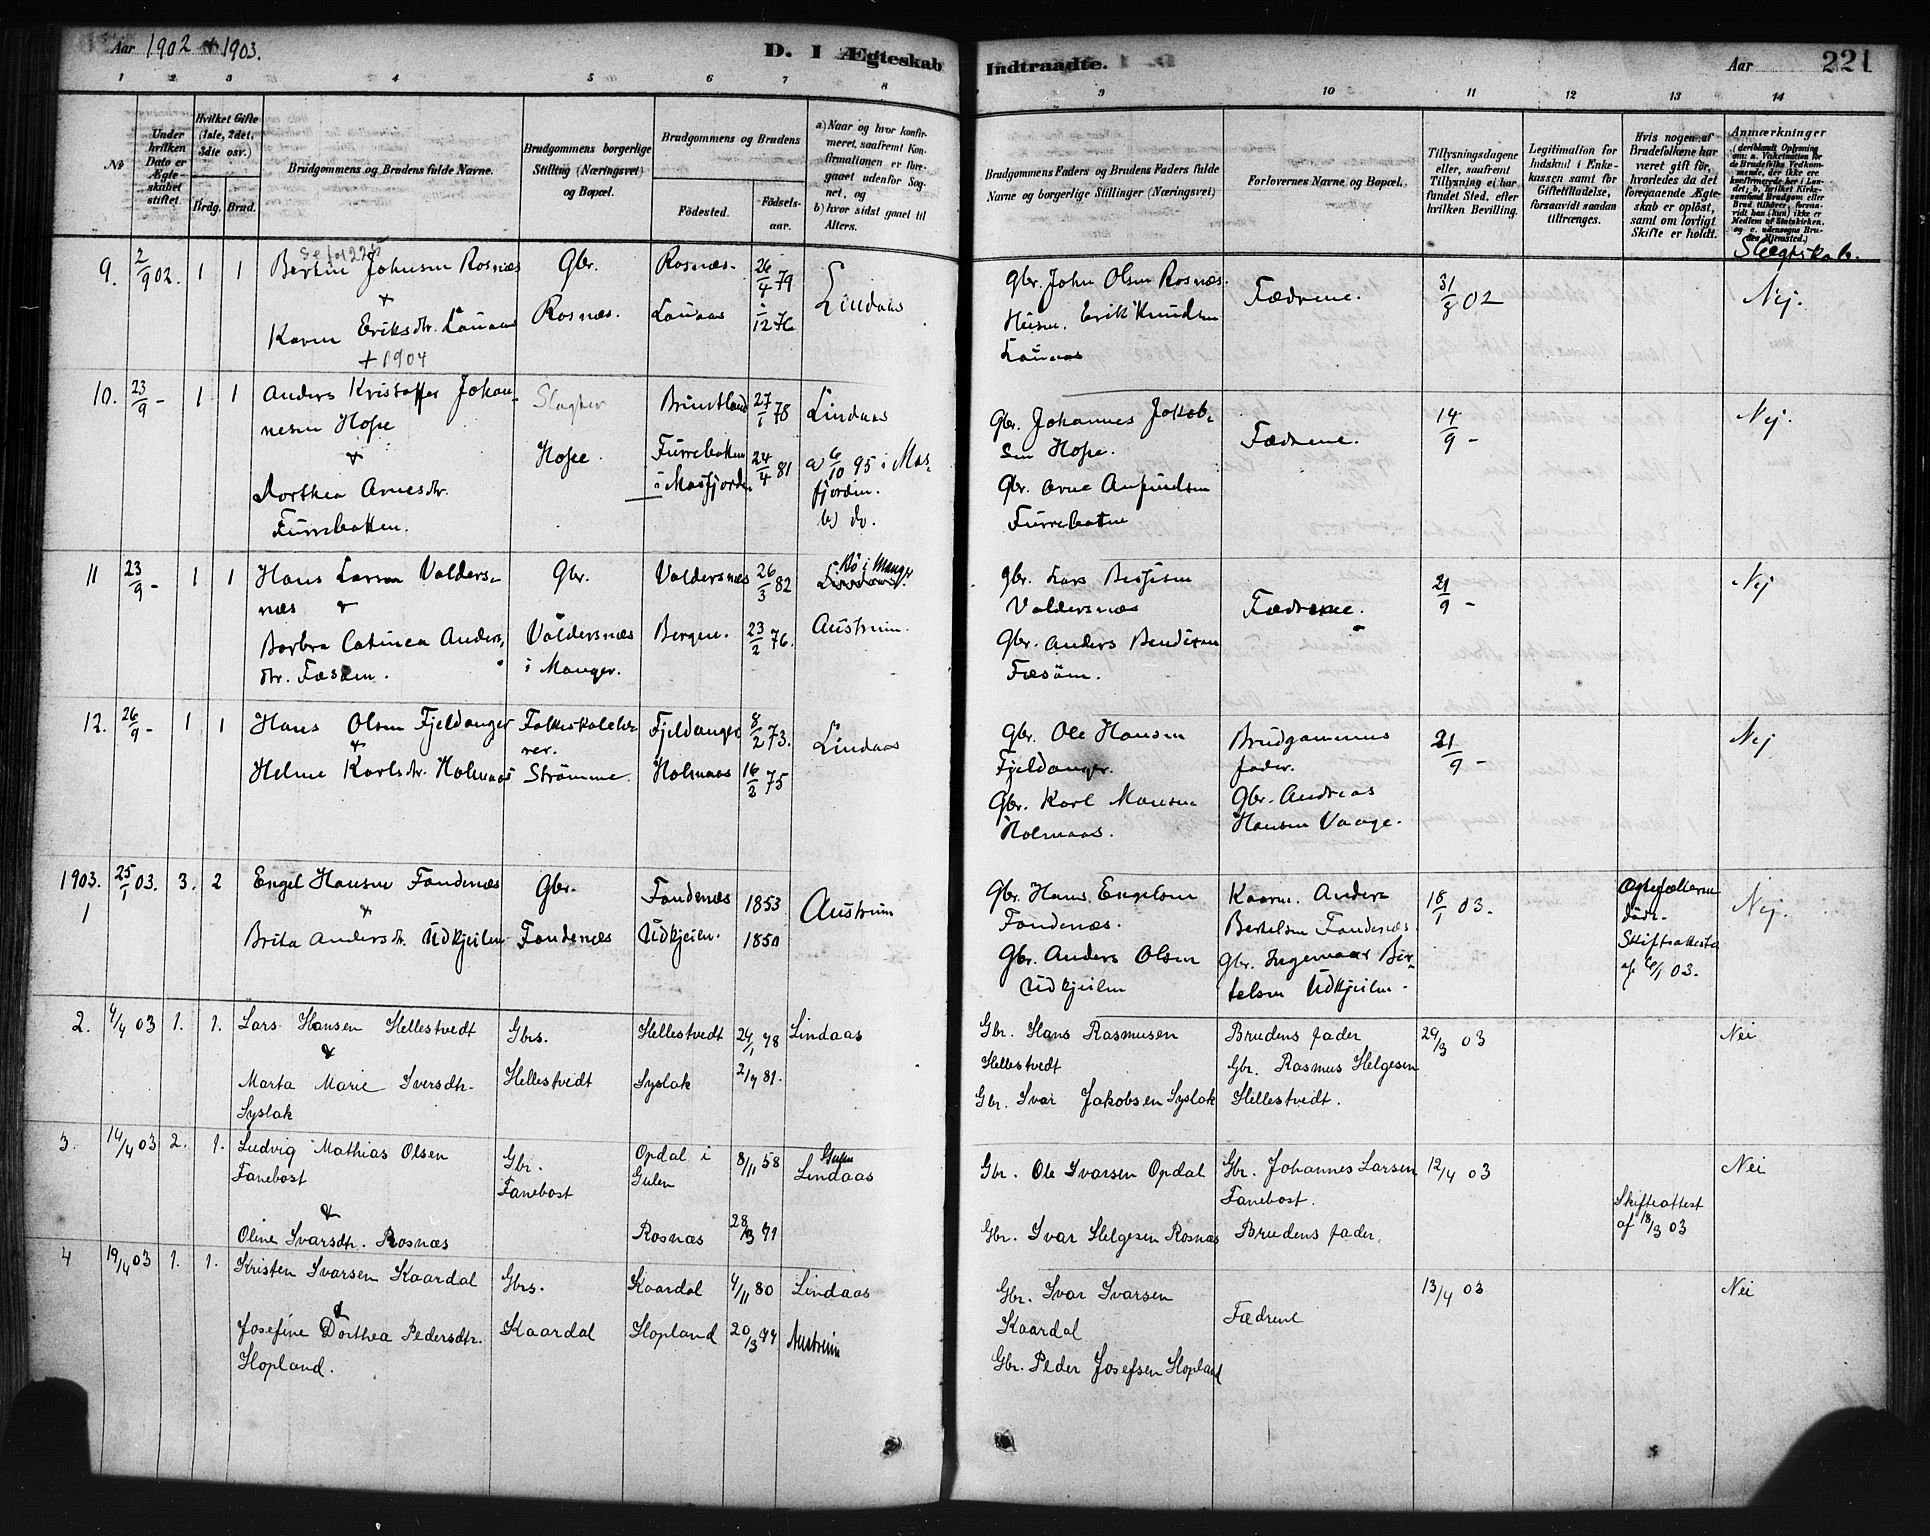 Aar 1902 & 1903.
D. I Ægteskab Indtraadte.
Aar
221
1 2 3 4 5 6 7 8 9 10 11 12 13 14
No
Under hvilken Dato er Ægteskabet stiftet.
Hvilket Gifte (1ste, 2det, 3die osv.)
Brdg. Brud.
Brudgommens og Brudens fulde Navne.
Brudgommens borgerlige Stilling (Næringsvei) og Bopæl.
Brudgommens og Brudens
Fødested.
Fødselsaar.
a) Naar og hvor konfirmeret, saafremt Konfirmationen er foregaaet udenfor Sognet, og
b) hvor sidst gaaet til Alters.
Brudgommens Faders og Brudens Faders fulde Navne og borgerlige Stillinger (Næringsvei)
Forlovernes Navne og Bopæl.
Tillysningsdagene eller, saafremt Tillysning ei har fundet Sted, efter hvilken Bevilling.
Legitimation for Indskud i Enkekassen samt for Giftetilladelse, forsaavidt saadan tiltrænges.
Hvis nogen af Brudefolkene har været gift før, hvorledes da det foregaaende Ægteskab er opløst, samt om lovligt Skifte er holdt.
Anmærkninger
Slægtskab.
9. 2/9 02. 1 1 Johnsen Rosnæs Gbr. Rosnæs. 26/4 79 Lindaas Gbr. John Olsen Rosnæs. Fædrene. 31/8 02 Nej.
&
Karen Eriksdr. Lauaas Rosnæs. Lauaas 1/12 76 Husm. Erik Knudsen
Lauaas
+ 1904
10. 23/9 - 1 1 Anders Kristoffer Johannesen Hope Slagter Bruntland 27/1 78 Lindaas Gbr. Johannes Jakobsen Hope. Fædrene. 14/9 - Nej.
&
Dorthea Arnesdr. Furrebotten. Hope. Furrebotten i Masfjorden 24/4 81 a) 6/10 95 i Masfjorden. b) do. Gbr. Arne Anfindsen Furrebotten
11 23/9 - 1 1 Hans Larsen Valdersnæs Gbr. Valdersnæs 26/3 82 Bø i Manger Gbr. Lars Valdersnæs Fædrene. 21/9 - Nej
&
Barbra Catinca Andersdtr. Valdersnæs i Manger. Bergen. 23/2 76. Austrem. Gbr. Anders Bendixen
12. 26/9 - 1 1 Hans Olsen Fjeldanger Folkeskolelærer. Fjeldanger 8/2 73. Lindaas Gbr. Ole Hansen Fjeldanger. Brudgommens fader. 21/9 - Nej
&
Helene Karlsdr. Holmaas Strømme. Holmaas 16/2 75 Gbr. Karl Monsen Holmaas. Gbr. Andreas Hansen Vaage.
1903. 1 25/1 03. 3. 2 Engel Hansen Fondenæs Gbr. Fondenæs 1853 Austrem Gbr. Hans Engelsen Fondenæs. Kaarm. Anders Bertelsen Fondenæs. 18/1 03. Ægtefællerne døde. Nej.
&
Brita Andersdr. Udkjeilen Fondenæs Udkjeilen. 1850 Gbr. Anders Olsen Udkjeilen Gbr. Ingemar Bertelsen Udkjeilen. Skifteattesta af 6/1 03.
2. 4/4 03 1. 1. Lars Hansen Hellestvedt Gbrs. Hellestvedt 24/1 78 Lindaas Gbr. Hans Rasmusen Hellestvedt Brudens fader 29/3 03 Nei
&
Marta Marie Iversdtr. Syslak Hellestvedt Syslak 2/7 81. Gbr. Ivar Jakobsen Syslak Gbr. Rasmus Helgesen Hellestvedt.
3. 14/4 03 2. 1. Ludvig Mathias Olsen Fanebost Gbr. Fanebost Opdal i Gulen 8/11 58 Gulen Lindaas Gbr. Ole Ivarsen Opdal Gbr. Johannes Larsen Fanebost. 12/4 03 Skifteattest af 18/3 03 Nei
&
Oline Ivarsdtr. Rosnæs Rosnæs 28/3 71 Gbr. Ivar Helgesen Rosnæs Brudens fader.
4 19/4 03 1. 1. Kristen Ivarsen Kaardal Gbrs. Kaardal 4/11 80 Lindaas Gbr. Ivar Ivarsen Kaardal Fædrene 13/4 03 Nei
&
Josefine Dorthea Pedersdtr. Hopland. Kaardal Hopland 20/3 77 Austreim Gbr. Peder Josefsen Hopland